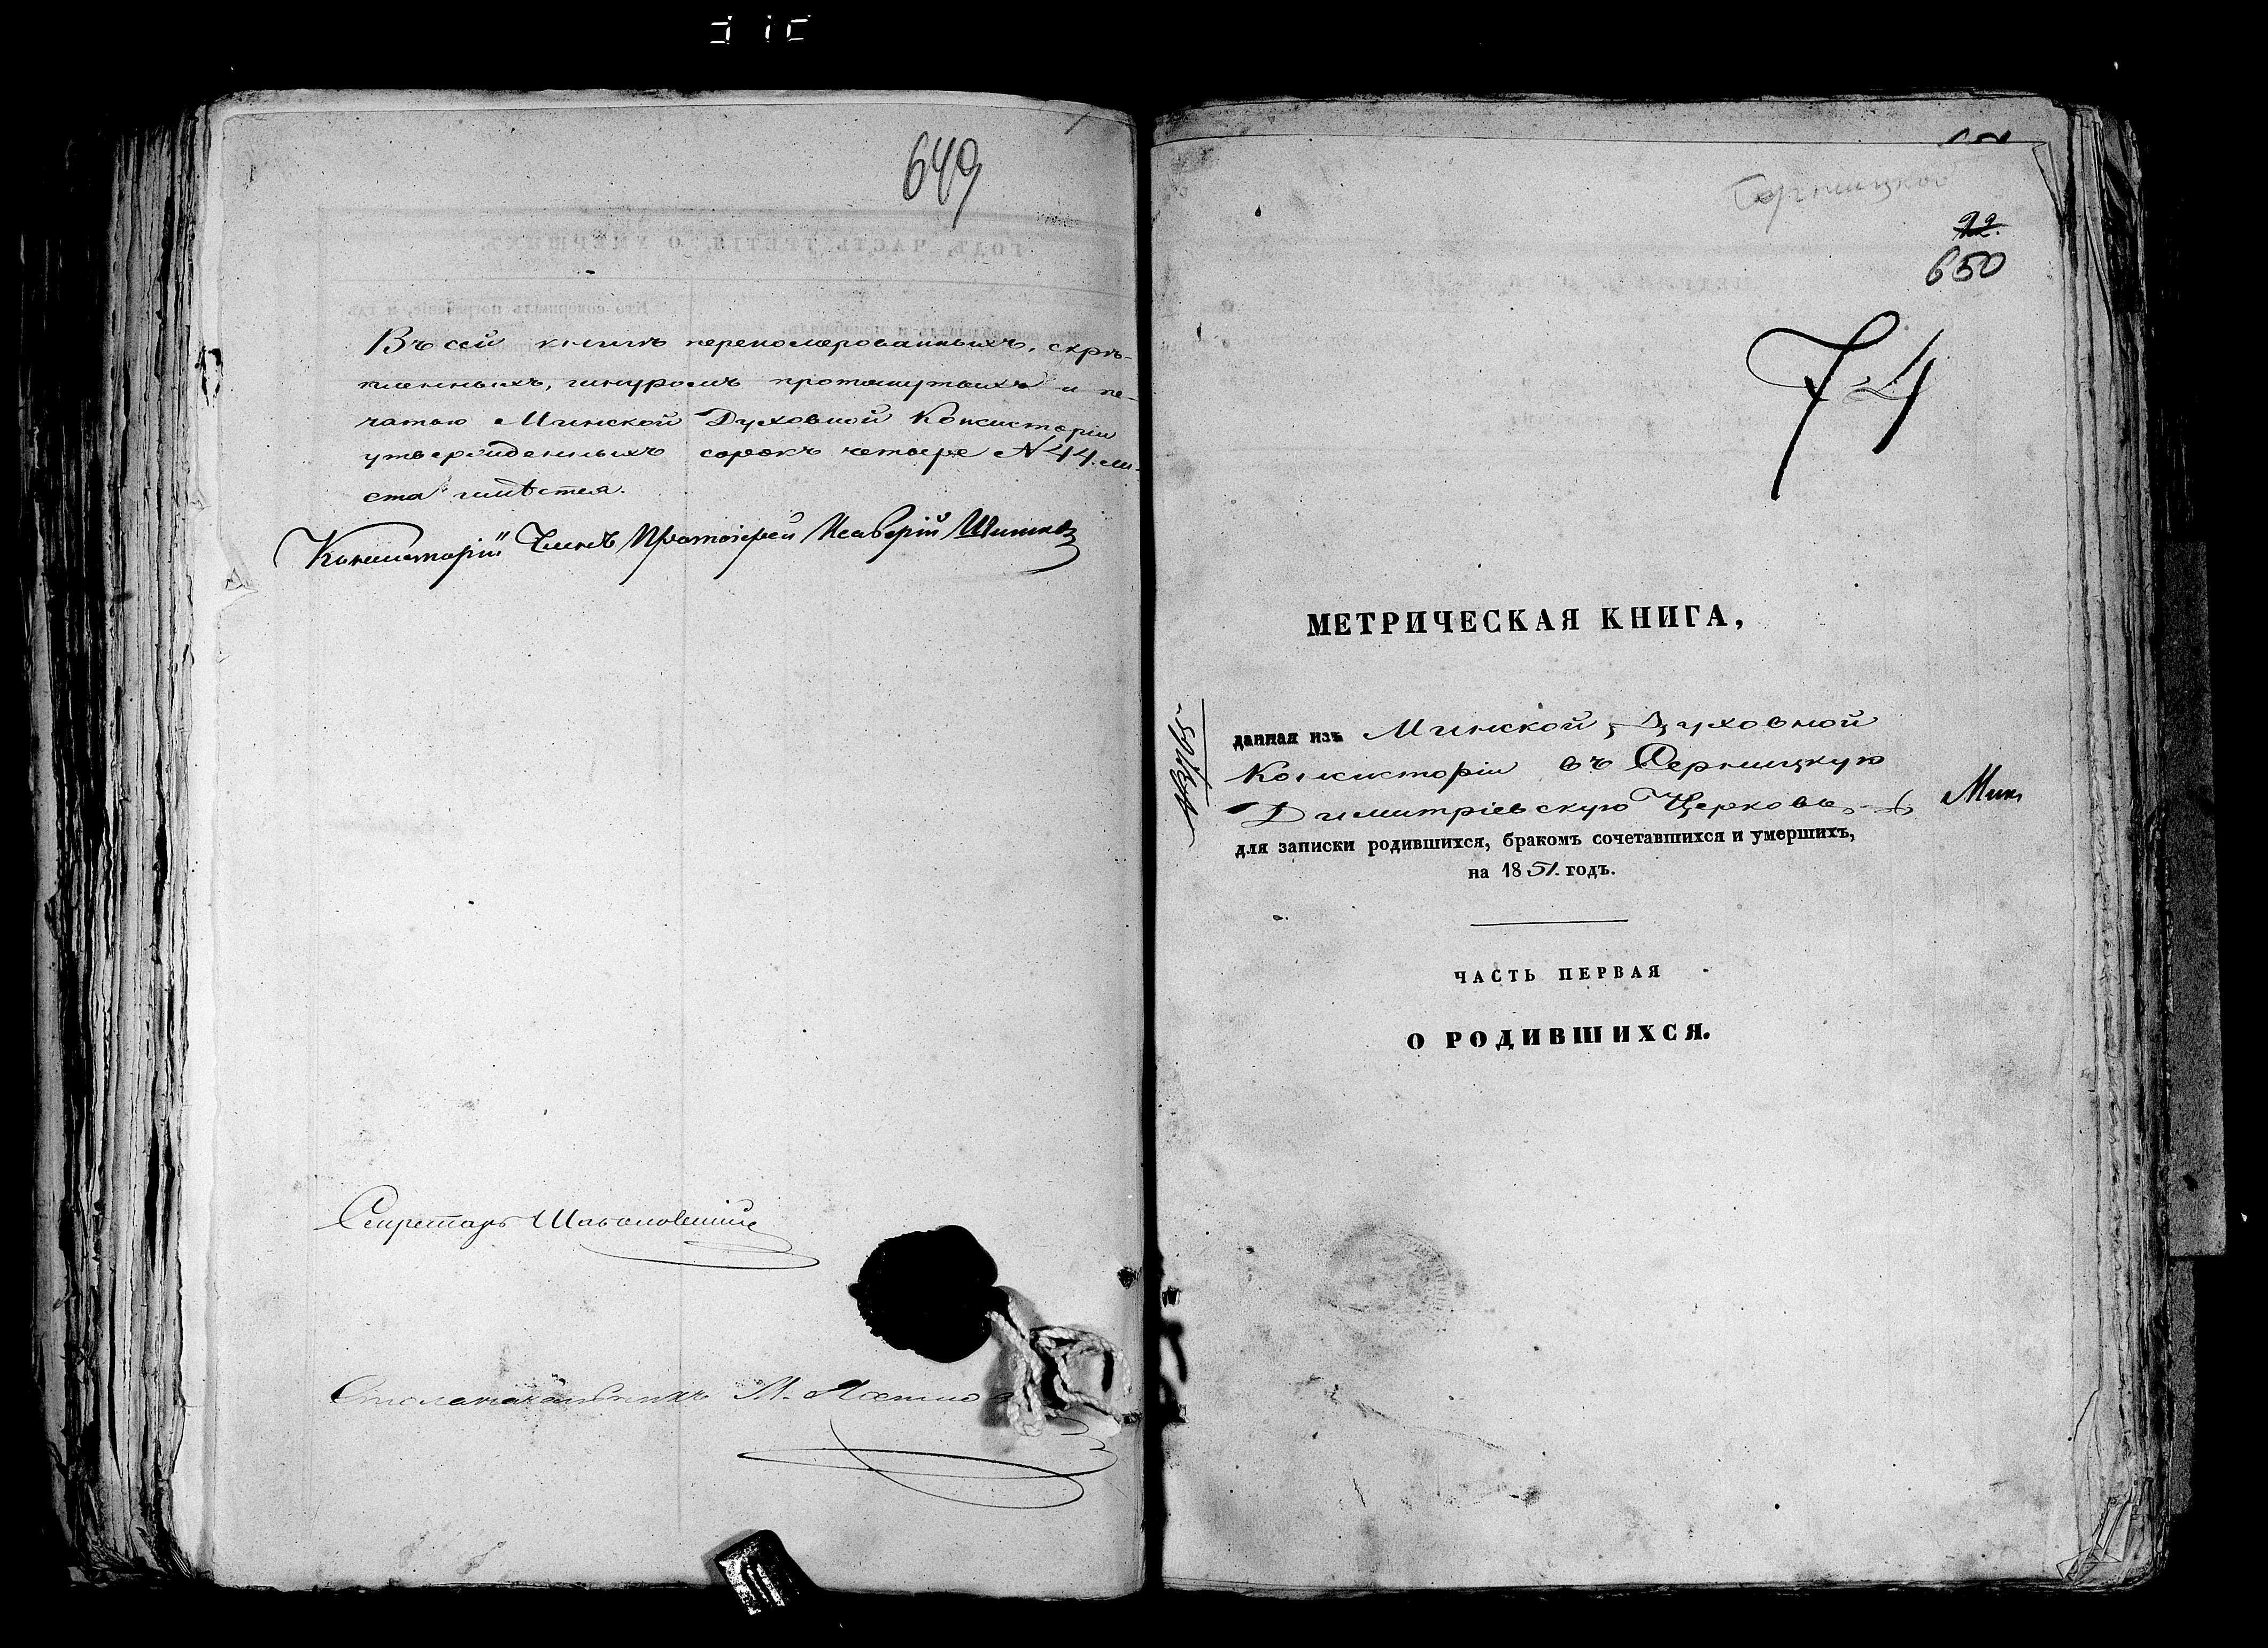 649
Въ сей книгѣ переномерованныхъ, скрѣ-
пленныхъ, шнуромъ протянутыхъ и пе-
чатью Минской Духовной Консисторіи
утвержденныхъ сорокъ четыре N 44. ли-
ста имѣется.
Консисторіи Членъ Протоіерей
Секретарь
Столоначальникъ М.
650
74
МЕТРИЧЕСКАЯ КНИГА,
данная изъ Минской Духовной
Консисторіи въ Серницкую
Димитріевскую Церковь
для записки родившихся, бракомъ сочетавшихся и умершихъ,
на 1851. годъ.
ЧАСТЬ ПЕРВАЯ
О РОДИВШИХСЯ.